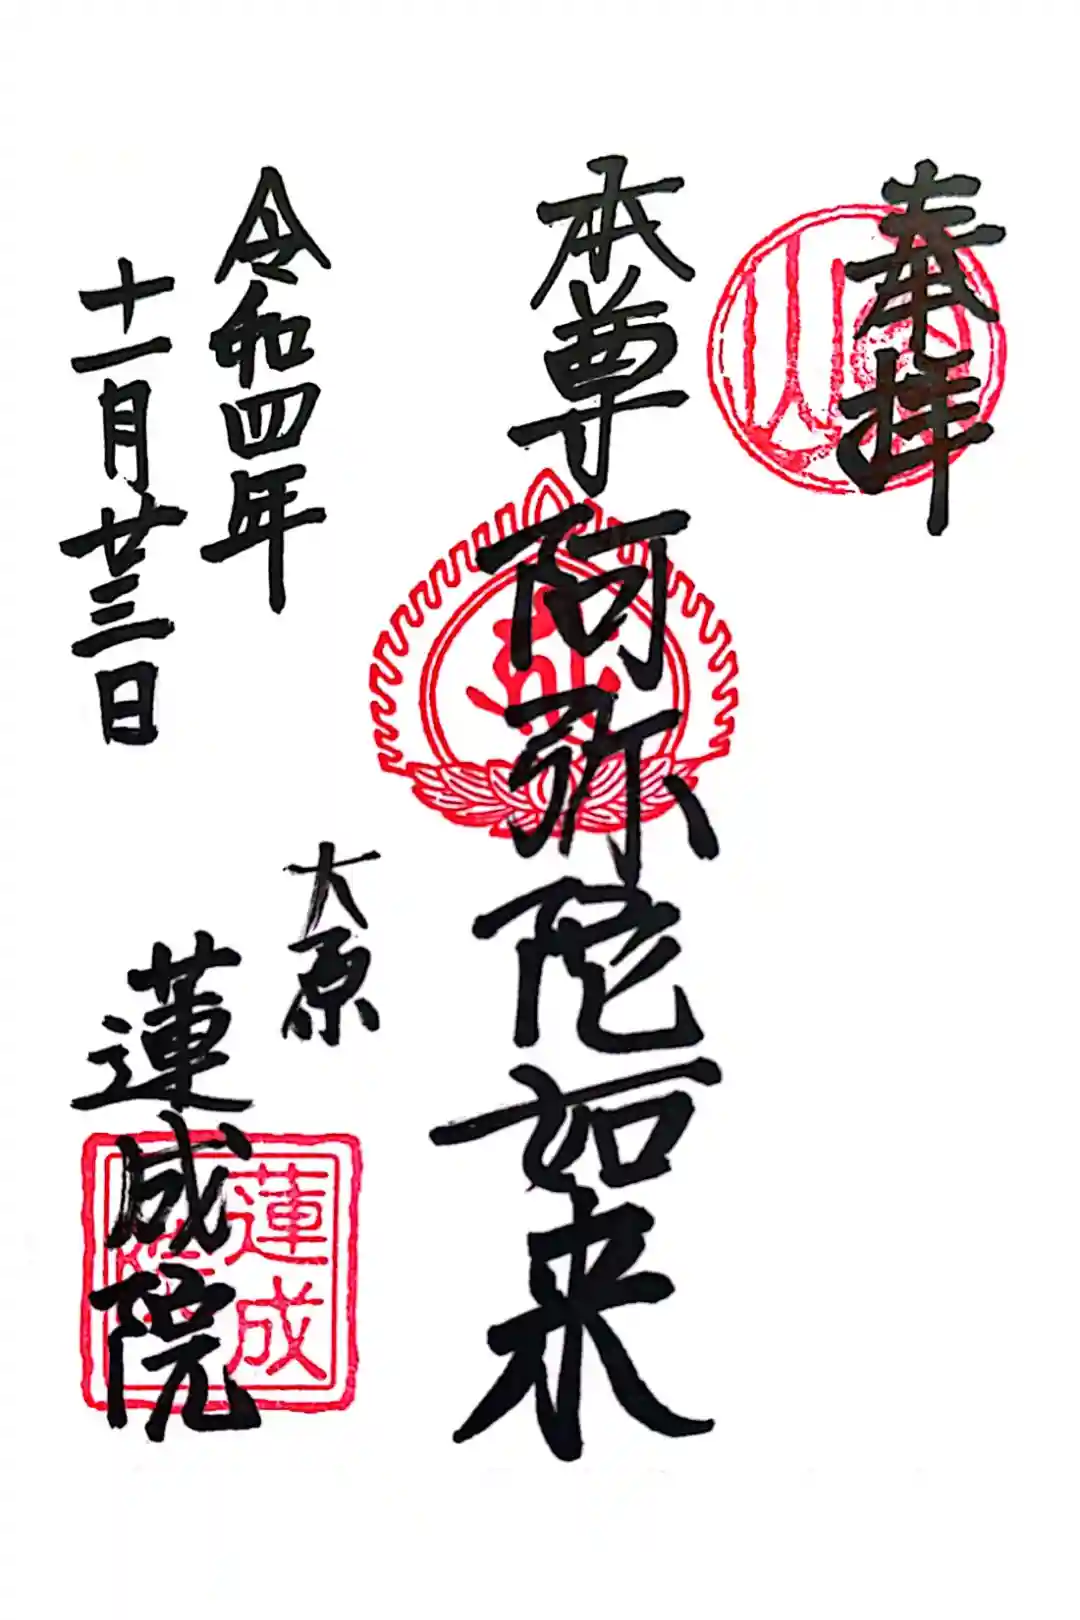 奉拝
本尊阿弥陀如来
大原
蓮成院
蓮成
令和四年
十一月廿三日